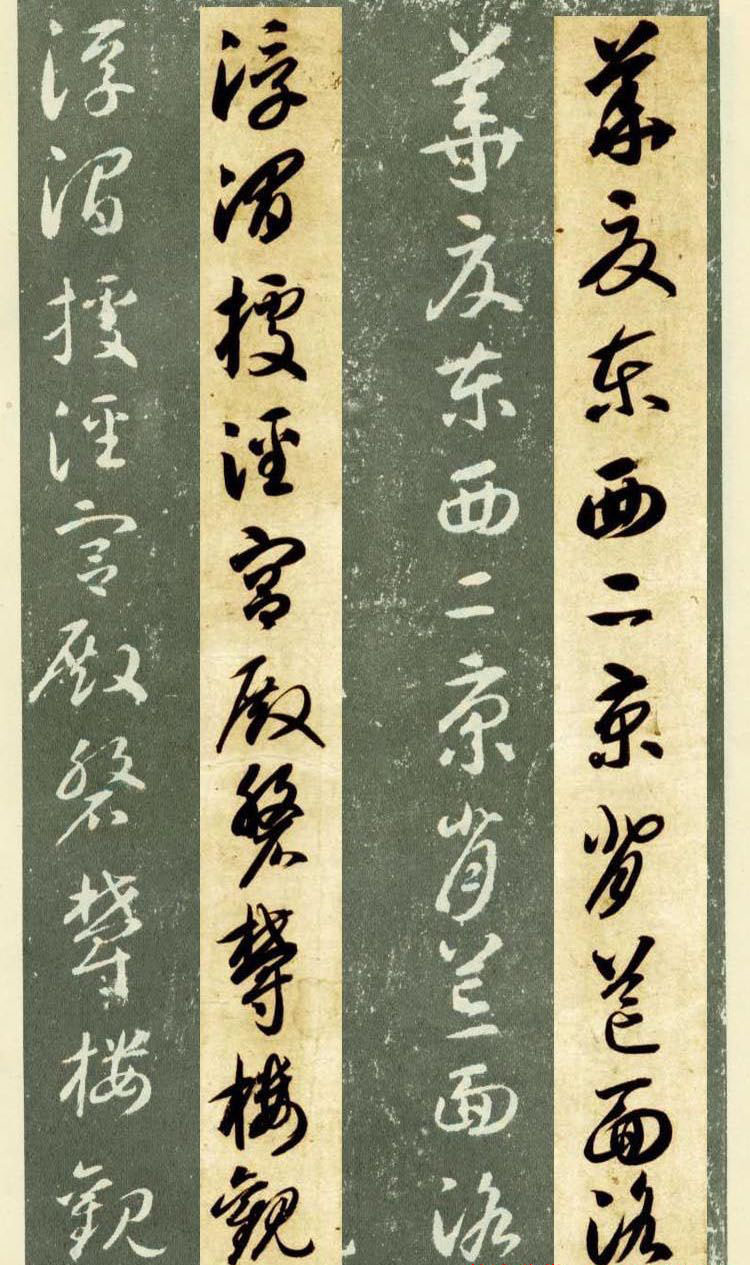 華夏東西二京背芒面洛
華夏東西二京背芒面洛
浮渭據涇宮殿磐鬱樓觀
浮渭據涇宮殿磐鬱樓觀